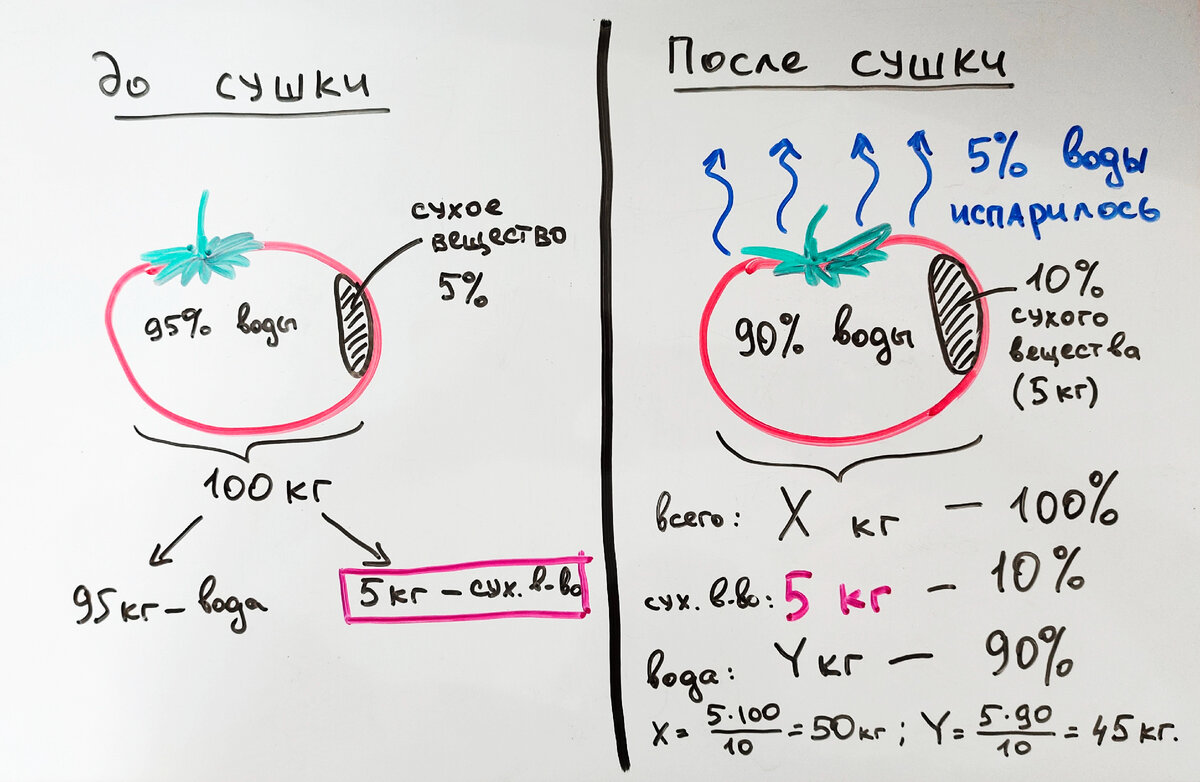 До сушки
сухое
вещество
5%
95% воды
100 кг
95 кг – вода
5 кг – сух. в-во
После сушки
5% воды
испарилось
90% воды
10%
сухого
вещества
(5 кг)
всего: X кг – 100%
сух. в-во: 5 кг – 10%
вода: Y кг – 90%
X = 5·100/10 = 50 кг ; Y = 5·90/10 = 45 кг.